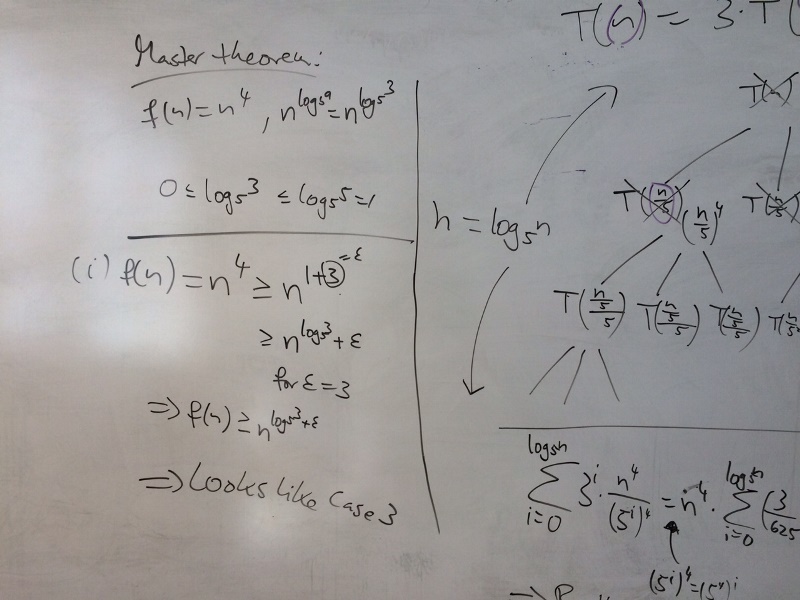 Master theorem:
f(n) = n^4 , n^{log_5 a} = n^{log_5 3}
0 ≤ log_5 3 ≤ log_5 5 = 1
(i) f(n) = n^4 ≥ n^{1+3} = ε
≥ n^{log_5 3 + ε}
for ε = 3
=> f(n) ≥ n^{log_5 3 + ε}
=> Looks like Case 3
T(n) = 3 · T(
T(n)
T(n/5) (n/5)^4 T(n/5)
h = log_5 n
T((n/5)/5) T((n/5)/5) T((n/5)/5) T((n/5)/5
∑_{i=0}^{log_5 n} 3^i · n^4/(5^i)^4 = n^4 · ∑_{i=0}^{log_5 n} (3/625
(5^i)^4 = (5^4)^i
=>